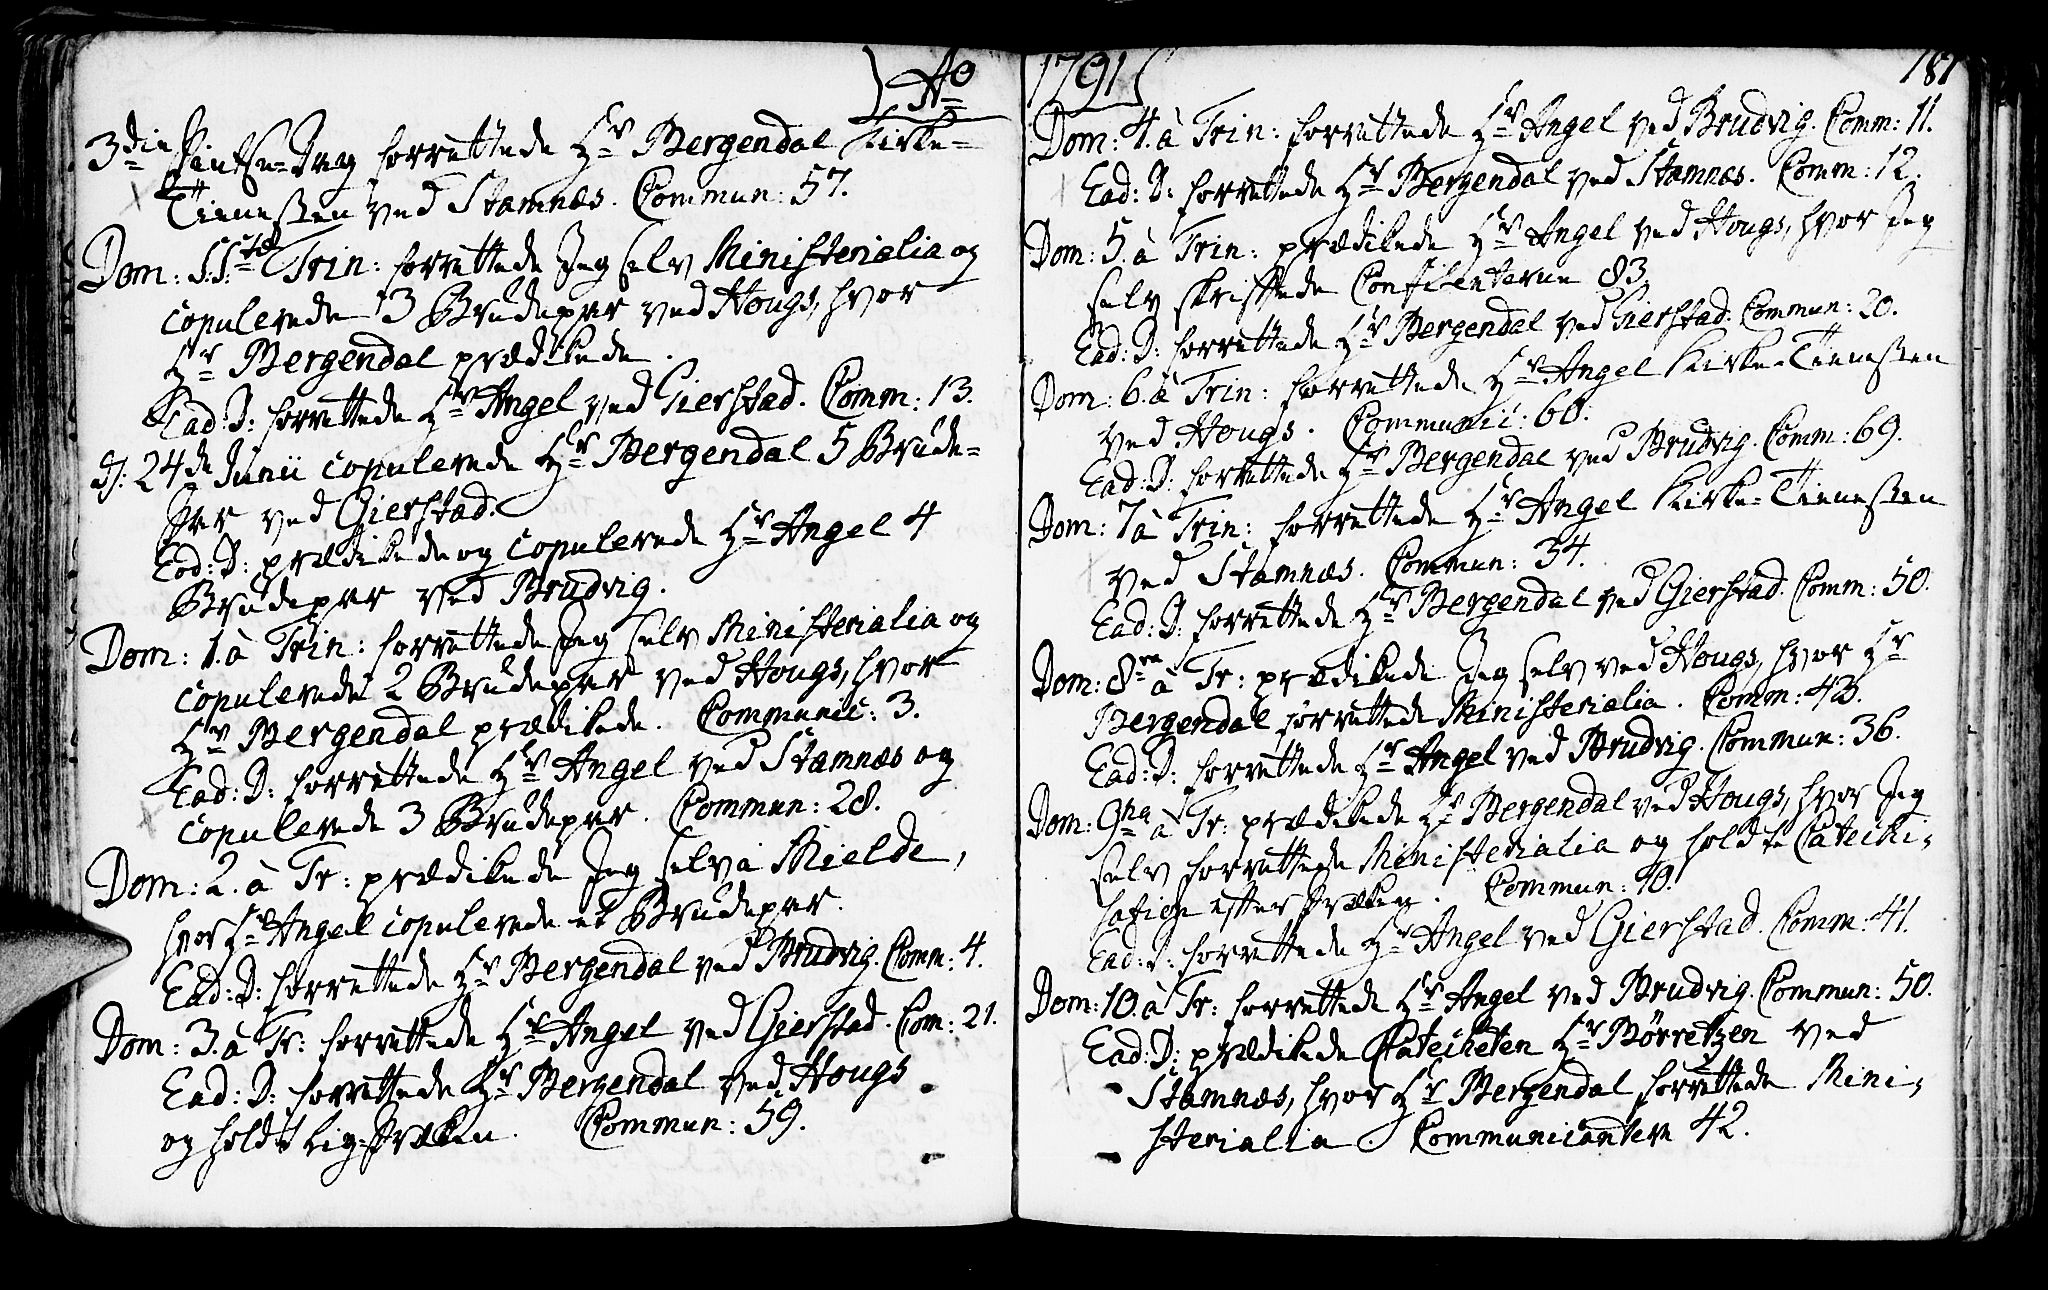 Ao
3die Pintse-Dag forrettede Hr Bergendal Kirke-
Tienesten ved Stamnæs. Commun: 57.
Dom: S.S.tæ Trin: forrettede Jeg selv Ministerialia og
copulerede 3 Brudepar ved Hougs, hvor
Hr Bergendal prædikede.
Ead: D: forrettede Hr Angel ved Gierstad. Comm: 13.
d: 24de Junii copulerede Hr Bergendal 5 Brude-
Par ved Gierstad.
Eod: D: prædikede og copulerede Hr Angel 4
Brudepar ved Brudvig.
Dom: 1. à Trin: forrettede Jeg selv Ministerialia og
copulerede 2 Brudepar ved Hougs, hvor
Hr Bergendal prædikede. Communic: 3.
Ead: D: forrettede Hr Angel ved Stamnæs og
copulerede 3 Brudepar. Commun: 28.
Dom: 2. à Tr: prædikede Jeg selv i Mielde,
hvor Hr Angel copulerede et Brudepar.
Ead: D: forrettede Hr Bergendal ved Brudvig. Comm: 4.
Dom: 3. à Tr: forrettede Hr Angel ved Gierstad. Com: 21.
Ead: D: forrettede Hr Bergendal ved Hougs
og holdt Lig-Præken. Commun: 59.
1791
181
Dom: 4. à Trin: forrettede Hr Angel ved Brudvig. Comm: 11.
Ead: D: forrettede Hr Bergendal ved Stamnæs. Comm: 12.
Dom: 5. à Trin: prædikede Hr Angel ved Hougs, hvor Jeg
selv skriftede Confitenterne 83.
Ead: D: forrettede Hr Bergendal ved Gierstad. Commun: 20.
Dom: 6. à Trin: forrettede Hr Angel Kirke-Tienesten
ved Hougs. Communic: 60.
Ead: D: forrettede Hr Bergendal ved Brudvig. Comm: 69.
Dom: 7 à Trin: forrettede Hr Angel Kirke-Tienesten
ved Stamnæs. Commun: 34.
Ead: D: forrettede Hr Bergendal ved Gierstad. Comm: 50.
Dom: 8va à Tr: prædikede Jeg selv ved Hougs, hvor Hr
Bergendal forrettede Ministerialia. Comm: 43.
Ead: D: forrettede Hr Angel ved Brudvig. Commun: 36.
Dom: 9na à Tr: prædikede Hr Bergendal ved Hougs, hvor Jeg
selv forrettede Ministerialia og holdte Catechi-
sation efter Præken. Commun: 90.
Ead: D: forrettede Hr Angel ved Gierstad. Comm: 41.
Dom: 10. à Tr: forrettede Hr Angel ved Brudvig. Commun: 50.
Ead: D: prædikede Catecheten Hr Børretzen ved
Stamnæs, hvor Hr Bergendal forrettede Mini-
sterialia. Communicantere 42.